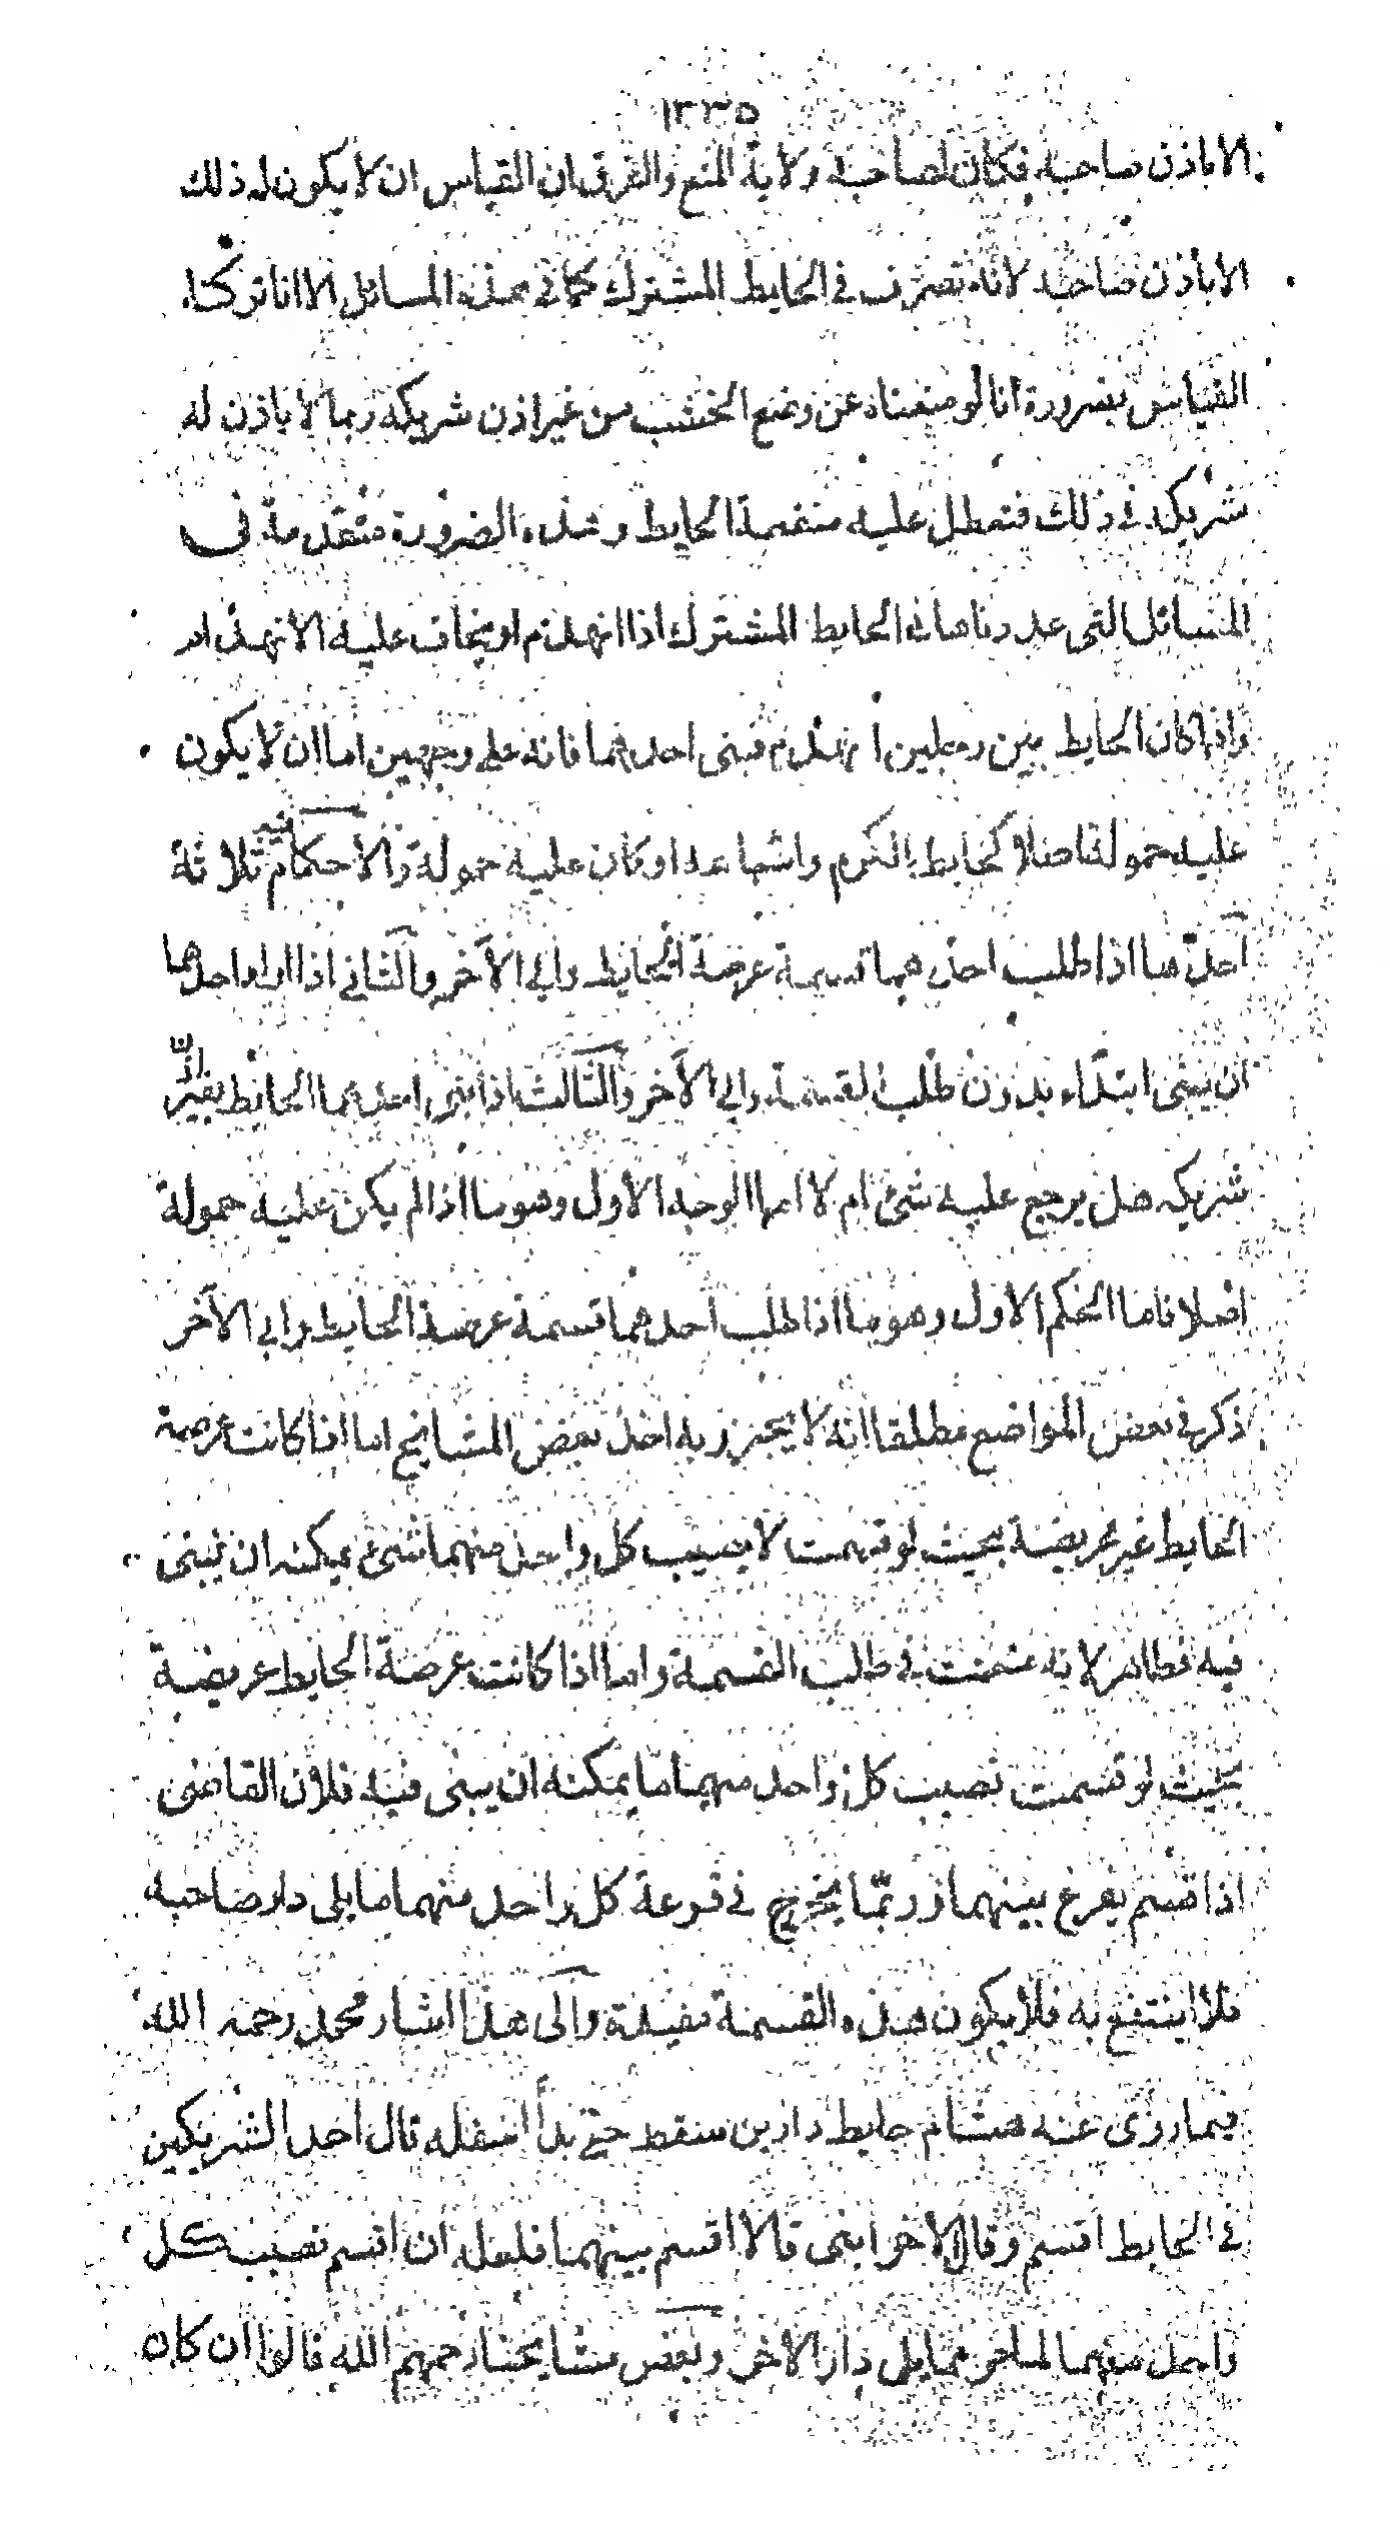 ١٢٣٥
الا باذن صاحبه فكان لصاحبه ولاية المنع والفرق ان القياس ان لا يكون له ذلك
الا بأذن صاحبه لانه تصرف في الحايط المشترك كما في هذه المسائل الا انا تركنا
القياس بضرورة انا لو منعناه عن وضع الخشب من غير اذن شريكه ربما لا ياذن له
شريكه في ذلك فتعطل عليه منفعة الحايط وهذه الضرورة منعدمة في
المسائل التى عددناها في الحايط المشترك اذا انهدم او يخاف عليه الانهدام
واذا كان الحايط بين رجلين انهدم فبنى احدهما فانه على وجهين اما ان لا يكون
عليه حمولة اصلا كحايط الكرم واشباهه او كان عليه حمولة والأحكام فيه ثلاثة
احدها اذا طلب احدهما قسمة عرصة الحايط وابى الآخر والثاني اذا اراد احدهما
ان يبنى ابتداء بدون طلب القسمة وابى الآخر والثالث اذا بنى احدهما الحايط بغير اذن
شريكه هل يرجع عليه شئ ام لا اما الوجه الأول وهو ما اذا لم يكن عليه حمولة
اصلا فاما الحكم الاول وهو ما اذا طلب احدهما قسمة عرصة الحايط وابى الآخر
ذكر في بعض المواضع مطلقا انه لا يجبر وبه اخذ بعض المشايخ اما اذا كانت عرصة
الحايط غير عريضة بحيث لو قسمت لا يصيب كل واحد منهما شئ يمكنه ان يبنى
فيه فظاهر لانه متعنت في طلب القسمة واما اذا كانت عرصة الحايط عريضة
بحيث لو قسمت نصيب كل واحد منهما ما يمكنه ان يبنى فيه فلان القاضى
اذا قسم يقرع بينهما وربما يخرج في قرعة كل واحد منهما ما يلى دار صاحبه
فلا ينتفع به فلا يكون هذه القسمة مفيدة والى هذا اشار محمد رحمه الله
فيما روى عنه هشام حايط دارين سقط حتى بدأ اسفله قال احد الشريكين
في الحايط اقسم وقال الاخر ابنى قال لا اقسم بينهما فلعله ان اقسم نصيب كل
واحد منهما مما يلى دار الاخر وبعض مشايخنا رحمهم الله قالوا ان كان